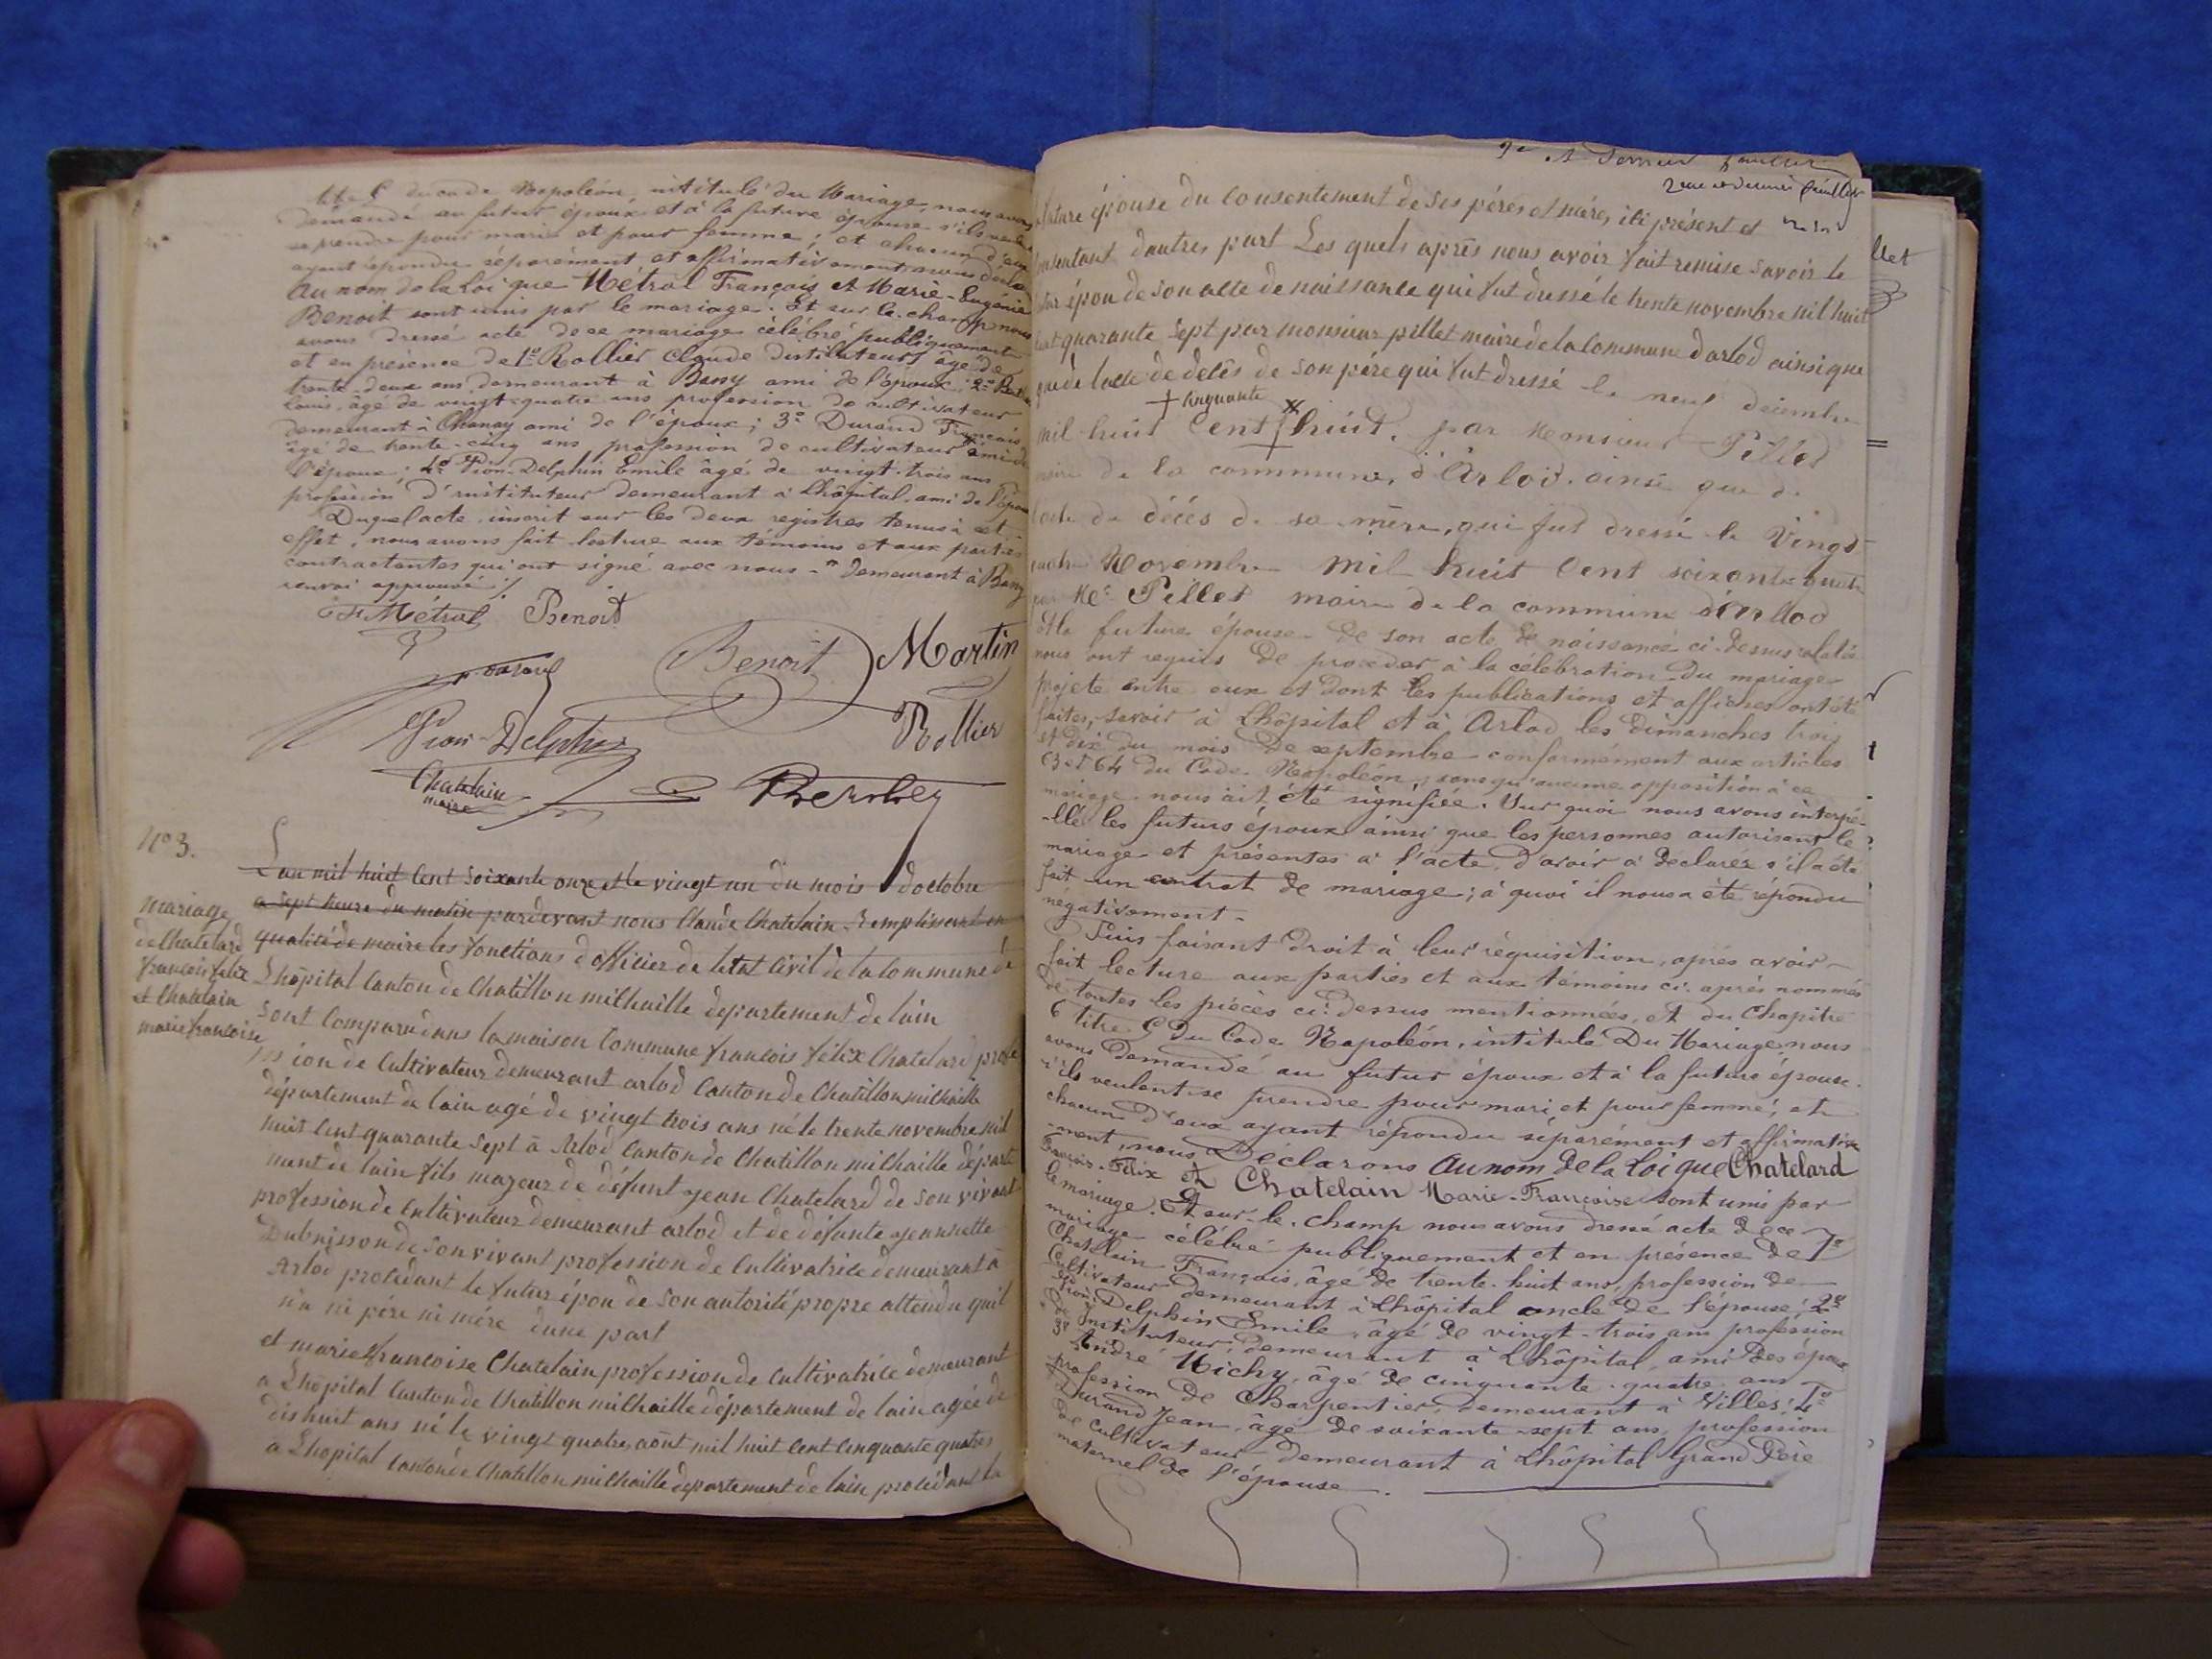 titre 5 du code Napoléon, intitulé du Mariage, nous avons
demandé au futur époux et à la future épouse s'ils veulent
se prendre pour mari et pour femme; et chacun d'eux
ayant répondu séparément et affirmativement, nous déclarons
Au nom de la Loi que Métral François et Marie-Eugénie
Benoit sont unis par le mariage. Et sur le champ nous
avons dressé acte de ce mariage célébré publiquement
et en présence de 1º Rollier Claude distilateur âgé de
trente-deux ans demeurant à Bany ami de l'époux; 2º
Louis, âgé de vingt-quatre ans profession de cultivateur
demeurant à Chanay ami de l'époux; 3º Durand François
âgé de trente-cinq ans profession de cultivateur ami de
l'époux; 4º Pion-Delphin Emile âgé de vingt-trois ans
profession d'instituteur demeurant à Lhôpital, ami de l'époux
Duquel acte, inscrit sur les deux registres tenus à cet
effet, nous avons fait lecture aux témoins et aux parties
contractantes qui ont signé avec nous - demeurant à Bany
renvoi approuvé
F. Métral Benoit
Benoit Martin
Durand
Pion-Delphin Rollier
Chatelain
maire
Nº 3.
mariage
de Chatelard
francois felix
et Chatelain
marie francoise
Lan mil huit Cent Soixante onze et le vingt un du mois doctobre
a Sept heure du matin pardevant nous Claude Chatelain Remplissant en
qualité de maire les fonctions dofficier de letat Civil de la Commune de
Lhôpital Canton de Chatillon milhaille departement de lain
Sont Comparu dans la maison Commune francois félix Chatelard profe
ssion de Cultivateur demeurant arlod Canton de Chatillon milhaille
département de lain agé de vingt trois ans né le trente novembre mil
huit Cent quarante Sept à Arlod Canton de Chatillon milhaille départe
ment de lain fils majeur de défunt jean Chatelard de son vivant
profession de Cultivateur demeurant arlod et de défunte jeannette
Dubuisson de Son vivant profession de Cultivatrice demeurant à
Arlod procédant le futur épou de Son autorité propre attendu quil
n'a ni père ni mère dune part
et marie francoise Chatelain profession de Cultivatrice demeurant
a Lhôpital Canton de Chatillon milhaille département de lain agée de
dis huit ans né le vingt quatre août mil huit Cent Cinquante quatre
a Lhopital Canton de Chatillon milhaille departement de lain procédant la
2me et dernier feuillet
future épouse du Consentement de Ses pères et mère, ici présent et
Consentant d'autres part Les quels après nous avoir fait remise Savoir le
futur épou de Son acte de naissance qui fut dressé le trente novembre mil huit
Cent quarante Sept par monsieur pillet maire de la Commune d'arlod ainsi que
que de lacte de décès de Son père qui fut dressé le neuf décembre
cinquante
mil huit Cent huit. par Monsieur Pillet
maire de la commune, d'Arlod. ainsi que de
l'acte de décès de sa mère, qui fut dressé le Vingt
quatre Novembre Mil huit Cent soixante quatre
par Mr Pillet maire de la commune d'Arlod
et la future épouse de son acte de naissance ci-dessus relaté
nous ont requis de procéder à la célébration du mariage
projeté entre eux et dont les publications et affiches ont été
faites, savoir à Lhôpital et à Arlod les dimanches trois
et dix du mois de septembre conformément aux articles
63 et 64 du Code Napoléon, sans qu'aucune opposition à ce
mariage nous ait été signifiée. Sur quoi nous avons interpé-
-llé les futurs époux ainsi que les personnes autorisant le
mariage et présentes à l'acte, d'avoir à déclarer s'il a été
fait un contrat de mariage; à quoi il nous a été répondu
négativement.
Puis faisant droit à leur réquisition, après avoir
fait lecture aux parties et aux témoins ci-après nommés
de toutes les pièces ci-dessus mentionnées, et du chapitre
6 titre 5 du Code Napoléon, intitulé Du Mariage nous
avons demandé au futur époux et à la future épouse
s'ils veulent se prendre pour mari et pour femme; et
chacun d'eux ayant répondu séparément et affirmative
-ment, nous Déclarons au nom de la Loi que Chatelard
François-Félix et Chatelain Marie-Françoise sont unis par
le mariage. Et sur-le-champ nous avons dressé acte de ce
mariage célébré publiquement et en présence de 1º
Chatelain François, âgé de trente-huit ans, profession de
Cultivateur demeurant à Lhôpital oncle de l'épouse; 2º
Pion-Delphin Emile, âgé de vingt-trois ans profession
d'Instituteur, demeurant à Lhôpital, ami des époux
3º André Michy, âgé de cinquante-quatre ans
profession de Charpentier, demeurant à Villes; 4º
Durand Jean, âgé de soixante-sept ans, profession
de cultivateur, demeurant à Lhôpital Grand Père
maternel de l'épouse.